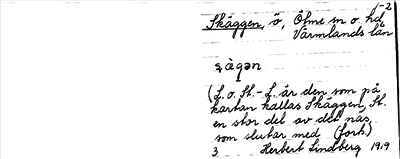 1-2
Skäggen, ö, Ölme sn o. hd,
Värmlands län
(L. o. St.-L. är den som på
kartan kallas Skäggen, St.
en stor del av det näs
som slutar med (forts.)
3 Herbert Lindberg 1919